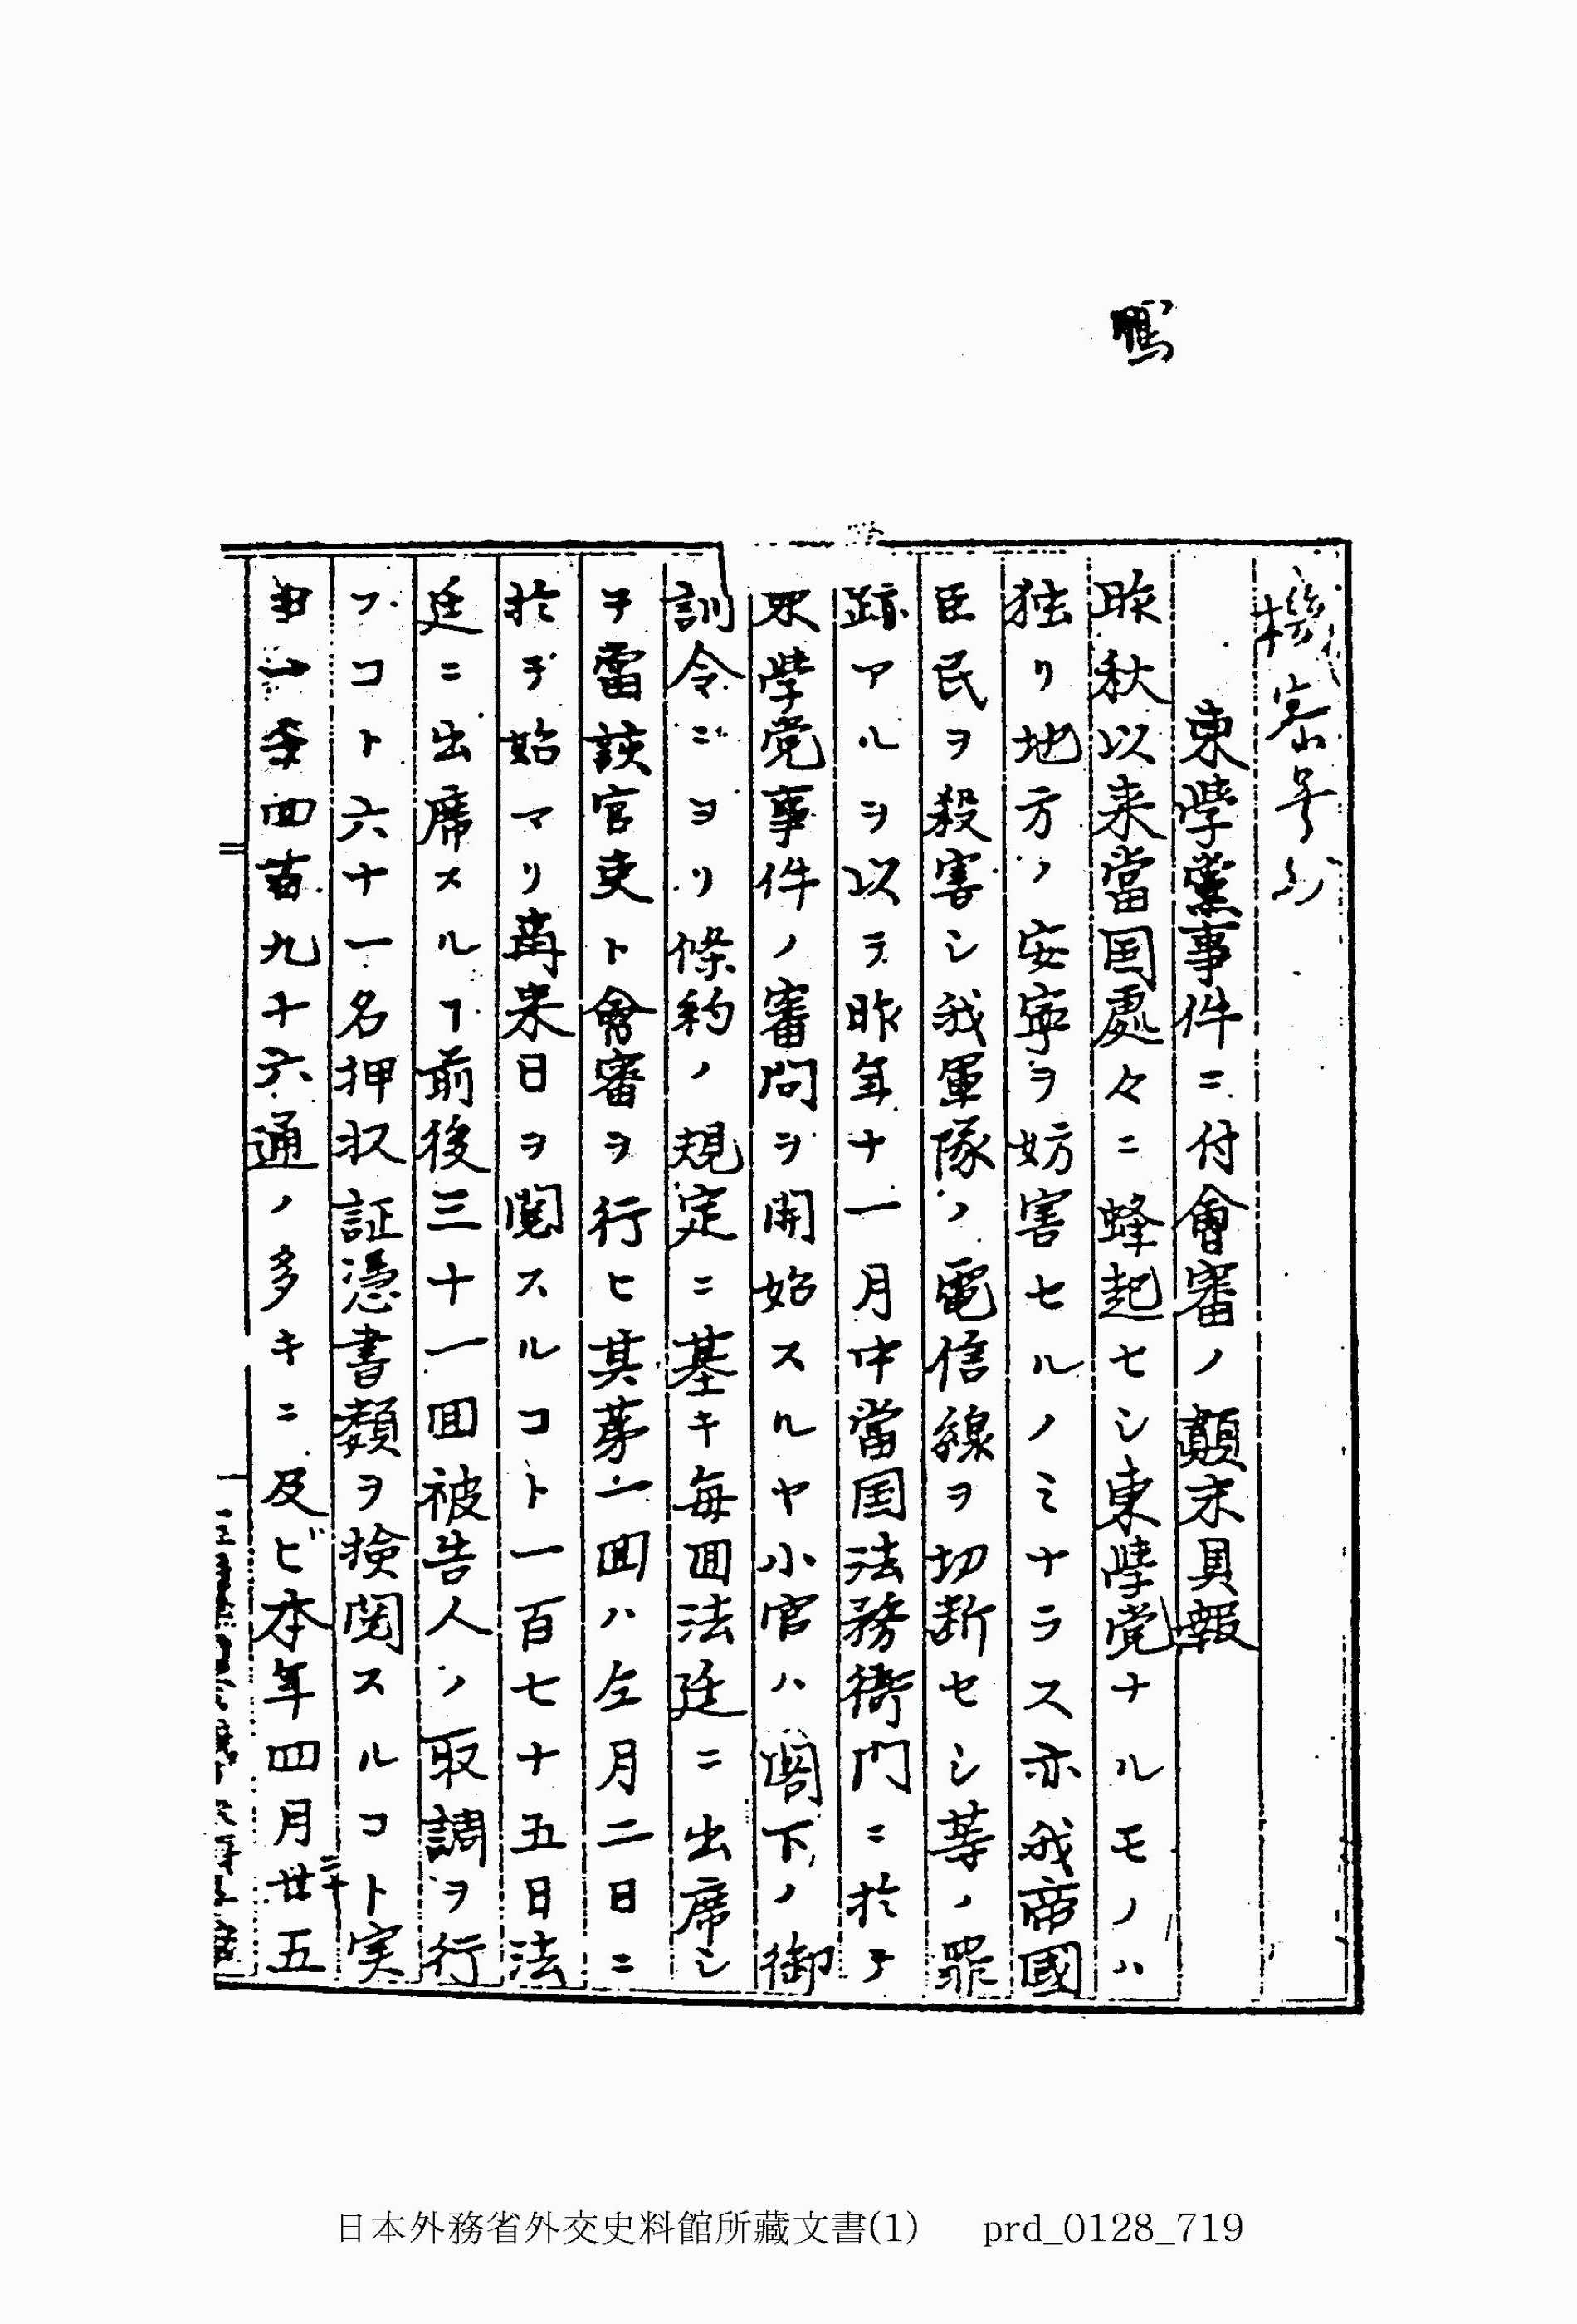 機密号外
東學黨事件ニ付會審ノ顛末具報
昨秋以来當国處々ニ蜂起セシ東學党ナルモノハ
独リ地方ノ安寧ヲ妨害セルノミナラス亦我帝國
臣民ヲ殺害シ我軍隊ノ電信線ヲ切断セシ等ノ罪
跡アルヲ以テ昨年十一月中當国法務衙門ニ於テ
右學党事件ノ審問ヲ開始スルヤ小官ハ閣下ノ御
訓令ニヨリ條約ノ規定ニ基キ毎回法廷ニ出席シ
ヲ當該官吏ト會審ヲ行ヒ其第一回ハ仝月二日ニ
於テ始マリ爾来日ヲ閲スルコト一百七十五日法
廷ニ出席スルヿ前後三十一回被告人ノ取調ヲ行
フコト六十一名押収証憑書類ヲ検閲スルコト実
ニ
一千四百九十六通ノ多キニ及ビ本年四月廿五
日本外務省外交史料館所藏文書(1) prd_0128_719